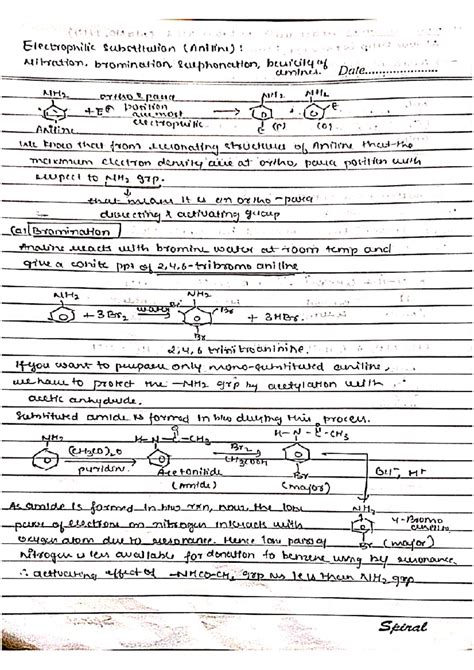 Electrophilic Substitution (Aniline) :
Nitration, bromination sulphonation, basicity of amines.
Date..................
NH2 ortho & para NH2 NH2
+ E⊕ position → E
are most E (p) (o)
Aniline electrophilic
We know that from resonating structure of Aniline that the
maximum electron density are at ortho, para position with
respect to NH2 grp.
↓
that means it is an ortho-para
directing & activating group
(a) Bromination
Analine reacts with bromine water at room temp and
give a white ppt of 2,4,6-tribromo aniline
NH2 NH2
+ 3Br2 water → Br Br + 3HBr.
Br
2,4,6 trinitroaninine.
If you want to prepare only mono-substituted aniline,
we have to protect the -NH2 grp by acetylation with
acetic anhydride.
Substituted amide is formed in b/w during this process.
NH2 H-N-C-CH3 O H-N-C-CH3 O
(CH3CO)2O → Br2 →
pyridine. Acetanilide CH3COOH Br OH-, H+
(Amide) (major)
As amide is formed in b/w rxn, now, the lone NH2
pair of electron on nitrogen interacts with 4-Bromo aniline
oxygen atom due to resonance. Hence lone pair of Br (major)
Nitrogen is less available for donation to benzene using by resonance.
∴ activating effect of -NHCO-CH3 grp is less than NH2 grp
Spiral